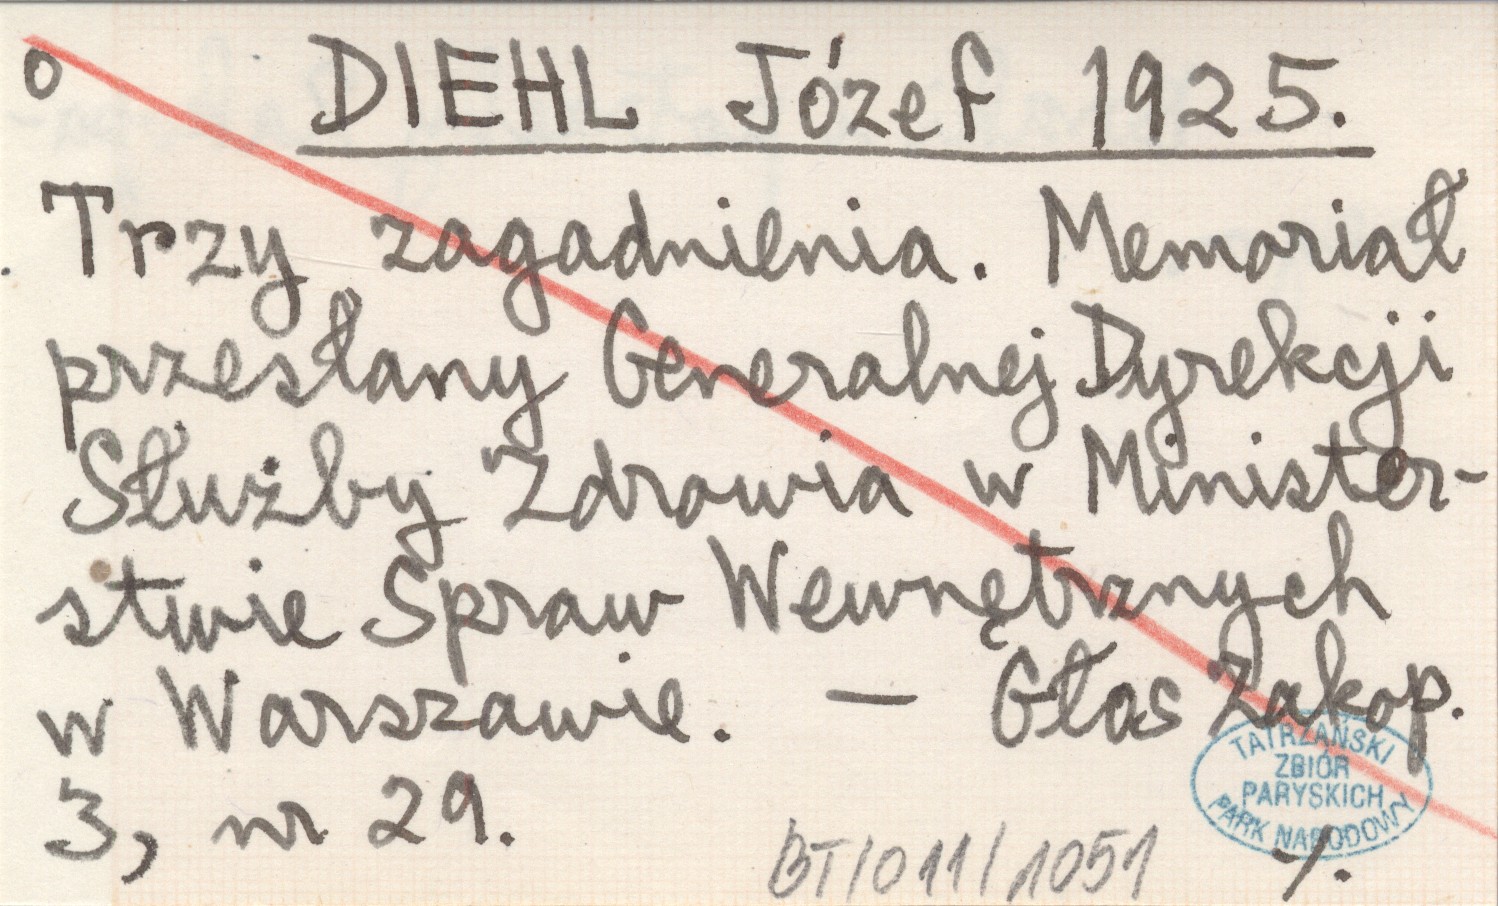 o DIEHL Józef 1925.
Trzy zagadnienia. Memoriał
przesłany Generalnej Dyrekcji
Służby Zdrowia w Minister-
stwie Spraw Wewnętrznych
w Warszawie. — Głos Zakop.
3, nr 29.
TATRZAŃSKI
ZBIÓR
PARYSKICH
PARK NARODOWY
BT/011/1051